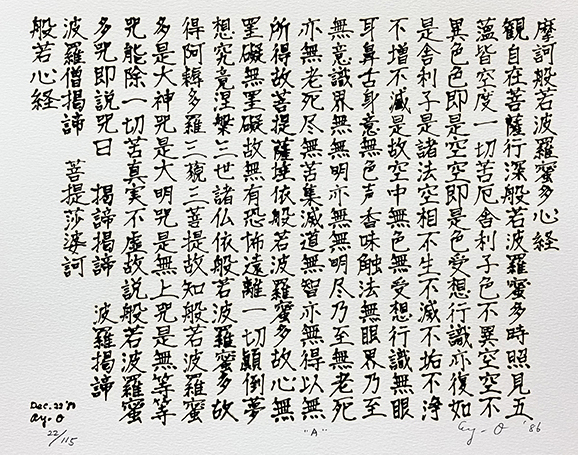 摩訶般若波羅蜜多心経
観自在菩薩行深般若波羅蜜多時照見五
蘊皆空度一切苦厄舎利子色不異空空不
異色色即是空空即是色受想行識亦復如
是舎利子是諸法空相不生不滅不垢不浄
不増不減是故空中無色無受想行識無眼
耳鼻舌身意無色声香味触法無眼界乃至
無意識界無無明亦無無明尽乃至無老死
亦無老死尽無苦集滅道無智亦無得以無
所得故菩提薩埵依般若波羅蜜多故心無
罣礙無罣礙故無有恐怖遠離一切顛倒夢
想究竟涅槃三世諸仏依般若波羅蜜多故
得阿耨多羅三藐三菩提故知般若波羅蜜
多是大神呪是大明呪是無上呪是無等等
呪能除一切苦真実不虚故説般若波羅蜜
多呪即説呪曰 掲諦掲諦 波羅掲諦
波羅僧掲諦 菩提莎婆訶
般若心経
Dec. 22
ay-O
22/115
"A"
ay-O '86